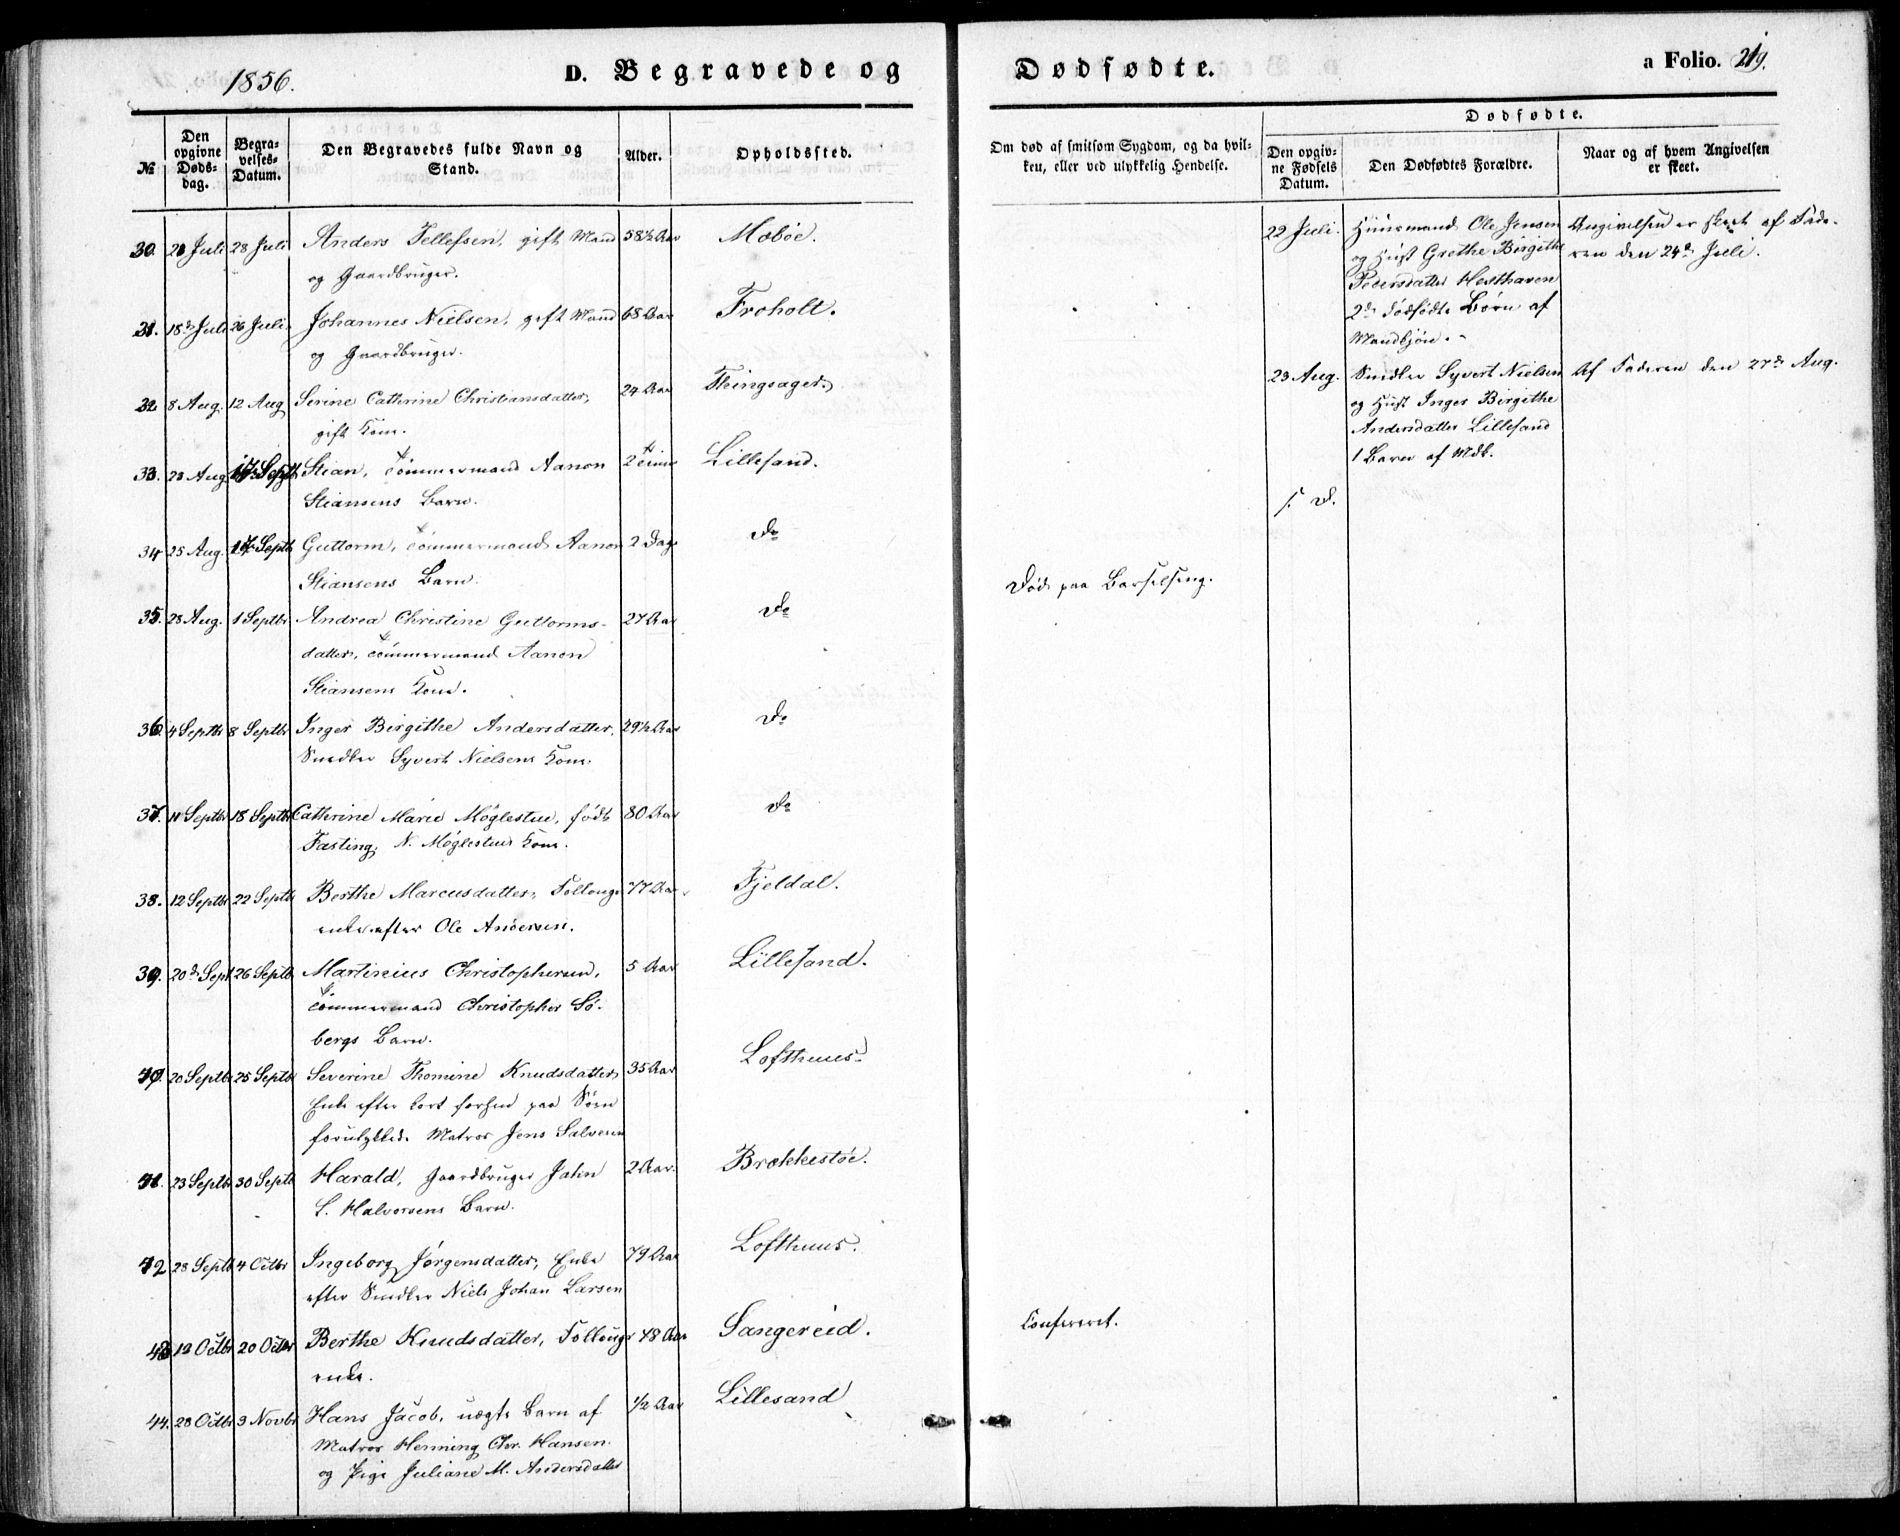 1856.
D. Begravede og
Dødfødte.
a Folio. 219.
№
Den opgivne Døds-dag.
Begra-velses-Datum.
Den Begravedes fulde Navn og Stand.
Alder.
Opholdssted.
Om død af smitsom Sygdom, og da hvil-
ken, eller ved ulykkelig Hendelse.
Dødfødte.
Den opgiv-
ne Fødsels
Datum.
Den Dødfødtes Forældre.
Naar og af hvem Angivelsen
er skeet.
30. 21 Juli 28 Juli Anders Tellefsen, gift Mand 58½ Aar Moböe.
og Gaardbruger.
31. 18de Juli 26 Juli. Johannes Nielsen, gift Mand 68 Aar Froholt.
og Gaardbruger.
32. 8 Aug. 12 Aug Serine Cathrine Christiansdatter, 24 Aar Thingsager
gift Kone.
33. 23 Aug 1 Septb Stian, Tömmermand Aanon 2 Time Lillesand.
Stiansens Barn.
34 25 Aug. 1 Septb Guttorm, Tömmermand Aanon 2 Dage Do
Stiansens Barn.
35. 28 Aug. 1 Septbr Andrea Christine Guttorms- 27 Aar Do
datter, Tömmermand Aanon
Stiansens Kone.
36. 4 Septbr 8 Septbr Inger Birgithe Andersdatter, 29½ Aar Do
Snedker Syvert Nielsens Kone.
37. 11 Septbr 18 Septbr Cathrine Marie Möglestue, født 80 Aar Do
Fasting, N. Möglestues Kone.
38. 12 Septbr 22 Septbr Berthe Marcusdatter, Follougs 77 Aar Fjeldal.
enke efter Ole Andersen.
39. 20de Sept 26 Septb Martinius Christophersen, 5 Aar Lillesand.
Tömmermand Christopher Sö-
bergs Barn.
40. 20 Septbr 25 Septbr Severine Thomine Knudsdatter, 35 Aar Lofthuus.
Enke efter kort forhen paa Söen
forulykkede Matros Jens Salvesen
41. 23 Septbr 30 Septb Harald, Gaardbruger Jahn 2 Aar. Brækkestöe.
S. Halvorsens Barn.
42 28 Septb 4 Octbr Ingeborg Jörgensdatter, Enke 79 Aar Lofthuus.
efter Snedker Niels Johan Larsen
43 12 Octbr 20 Octbr Berthe Knudsdatter, Follougs 48 Aar Sangereid.
enke.
44. 28 Octbr 3 Novbr Hans Jacob, uægte Barn af ½ Aar Lillesand
Matros Henning Chr. Hansen
og Pige Juliane M. Andersdatter
Död paa Barselseng.
22 Juli. Huusmand Ole Jensen Angivelsen er skeet af Fade-
og Hust Grethe Birgithe ren den 24de Juli.
Pedersdatter Hesthaven
2de dödfödte Börn af
Mandkjön.
23 Aug. Snedker Syvert Nielsen Af Faderen den 27de Aug.
og Hust Inger Birgithe
Andersdatter Lillesand
1 Barn af Mdk.